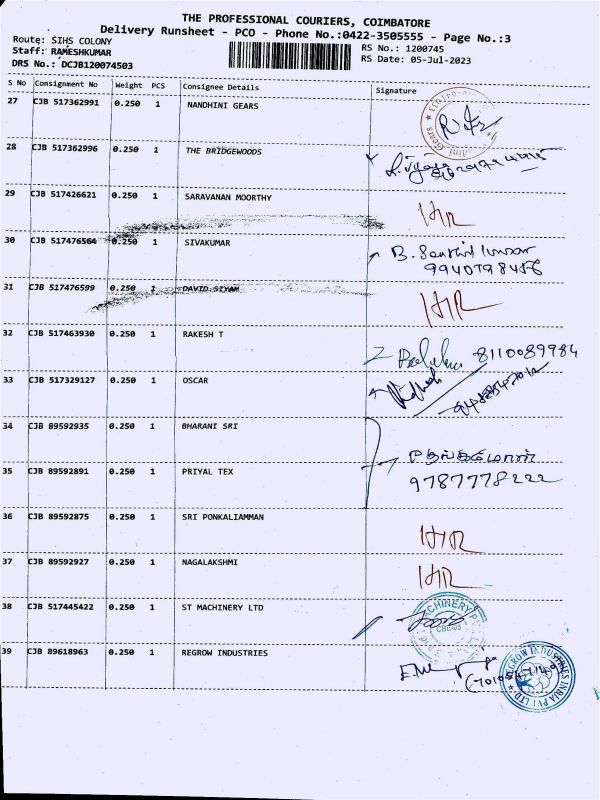 THE PROFESSIONAL COURIERS, COIMBATORE
Delivery Runsheet - PCO - Phone No.:0422-3505555 - Page No.:3
Route: SIHS COLONY
Staff: RAMESHKUMAR
DRS No.: DCJB120074503
RS No.: 1200745
RS Date: 05-Jul-2023
S No Consignment No Weight PCS Consignee Details Signature
27 CJB 517362991 0.250 1 NANDHINI GEARS
28 CJB 517362996 0.250 1 THE BRIDGEWOODS
29 CJB 517426621 0.250 1 SARAVANAN MOORTHY
30 CJB 517476564 0.250 1 SIVAKUMAR
9940798456
31 CJB 517476599 0.250 1 DAVID SIYAM
32 CJB 517463930 0.250 1 RAKESH T 8110089984
33 CJB 517329127 0.250 1 OSCAR
34 CJB 89592935 0.250 1 BHARANI SRI
35 CJB 89592891 0.250 1 PRIYAL TEX 9787778222
36 CJB 89592875 0.250 1 SRI PONKALIAMMAN
37 CJB 89592927 0.250 1 NAGALAKSHMI
38 CJB 517445422 0.250 1 ST MACHINERY LTD
39 CJB 89618963 0.250 1 REGROW INDUSTRIES
REGROW INDUSTRIES INDIA PVT LTD